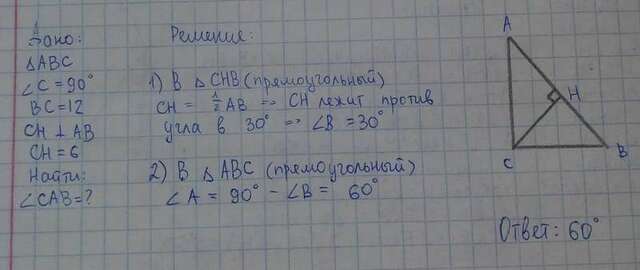 Дано:
△ABC
∠C = 90°
BC = 12
CH ⊥ AB
CH = 6
Найти:
∠CAB = ?
Решение:
1) В △ CHB (прямоугольный)
CH = 1/2 AB => CH лежит против
угла в 30° => ∠B = 30°
2) В △ ABC (прямоугольный)
∠A = 90° - ∠B = 60°
A
H
C
B
Ответ: 60°